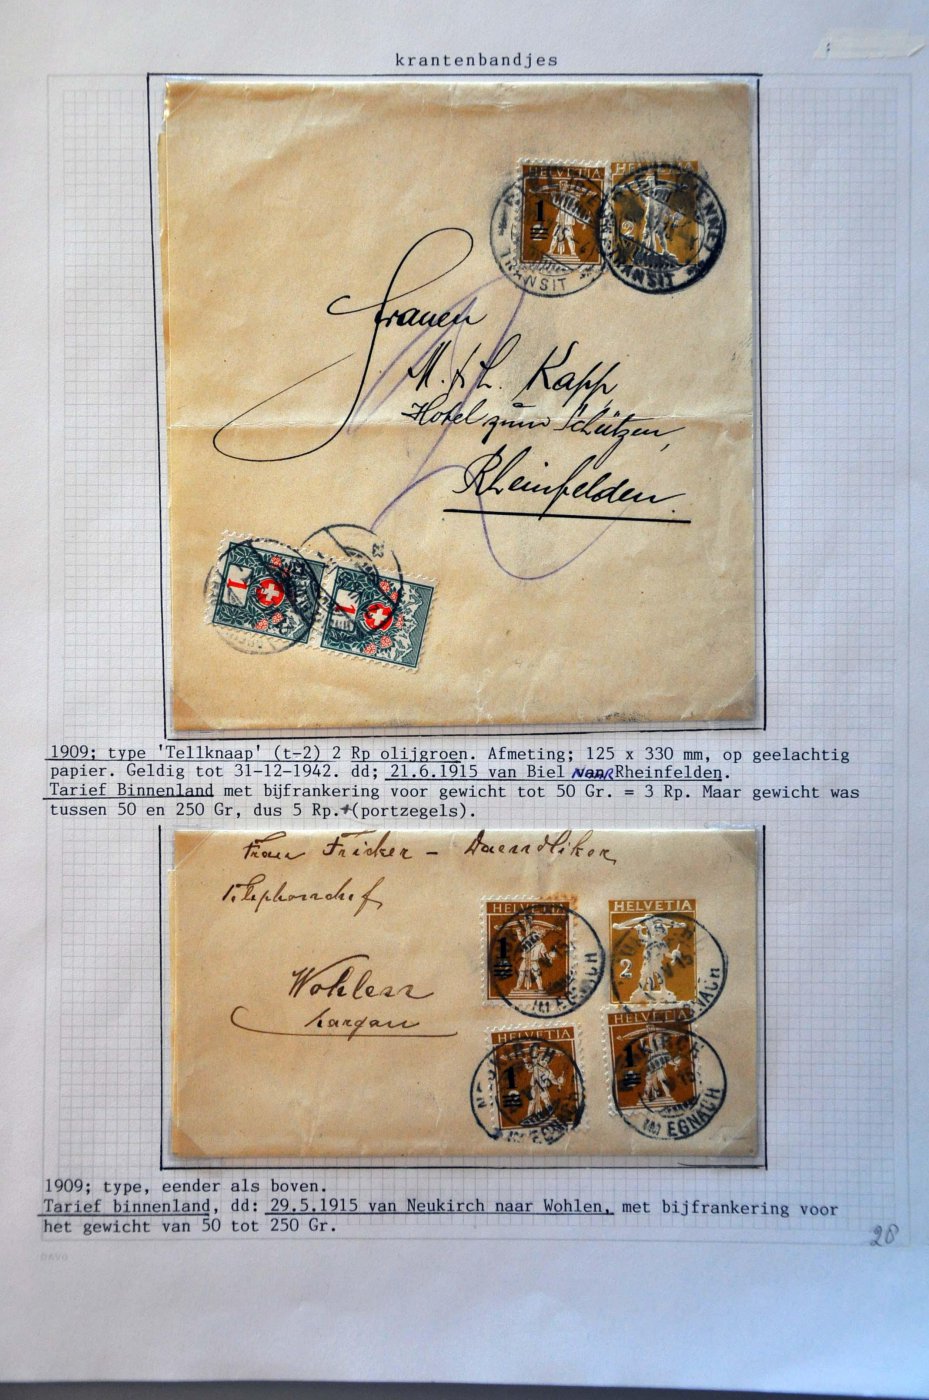 krantenbandjes
HELVETIA
HELVETIA
1
2
TRANSIT
TRANSIT
Frauen
M. & L. Kapp
Hotel zum Schützen,
Rheinfelden.
1
1
1909; type 'Tellknaap' (t-2) 2 Rp olijgroen. Afmeting; 125 x 330 mm, op geelachtig
papier. Geldig tot 31-12-1942. dd; 21.6.1915 van Biel naar Rheinfelden.
Tarief Binnenland met bijfrankering voor gewicht tot 50 Gr. = 3 Rp. Maar gewicht was
tussen 50 en 250 Gr, dus 5 Rp.+(portzegels).
Frau Fricker -
Telephonchef
Wohlen
Aargau
HELVETIA
HELVETIA
1
2
EGNACH
HELVETIA
HELVETIA
1
1
NEUKIRCH
EGNACH
EGNACH
1909; type, eender als boven.
Tarief binnenland, dd: 29.5.1915 van Neukirch naar Wohlen, met bijfrankering voor
het gewicht van 50 tot 250 Gr.
28
DAVO